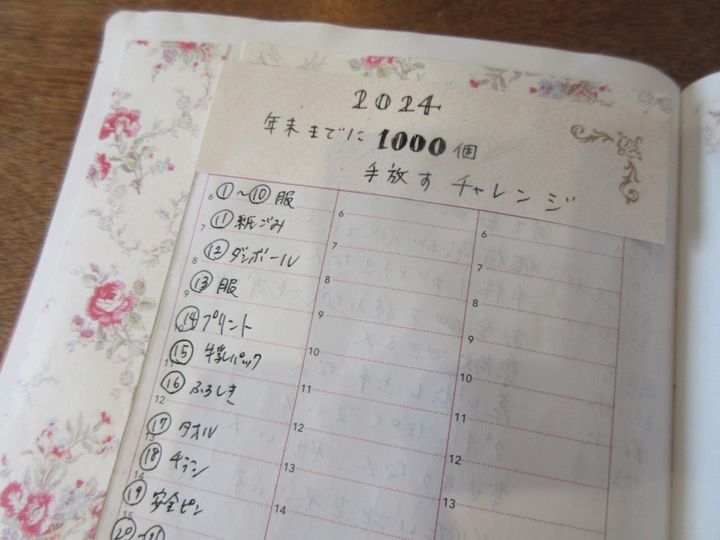 2024
年末までに1000個
手放すチャレンジ
6 ①〜⑩ 服 6 6
7 ⑪ 紙ごみ 7 7
8 ⑫ ダンボール 8 8
9 ⑬ 服 9 9
⑭ プリント 10 10
11 ⑮ 牛乳パック 11 11
12 ⑯ ふろしき 12 12
13 ⑰ タオル 13 13
14 ⑱ チラシ 14
15 ⑲ 安全ピン
⑳〜